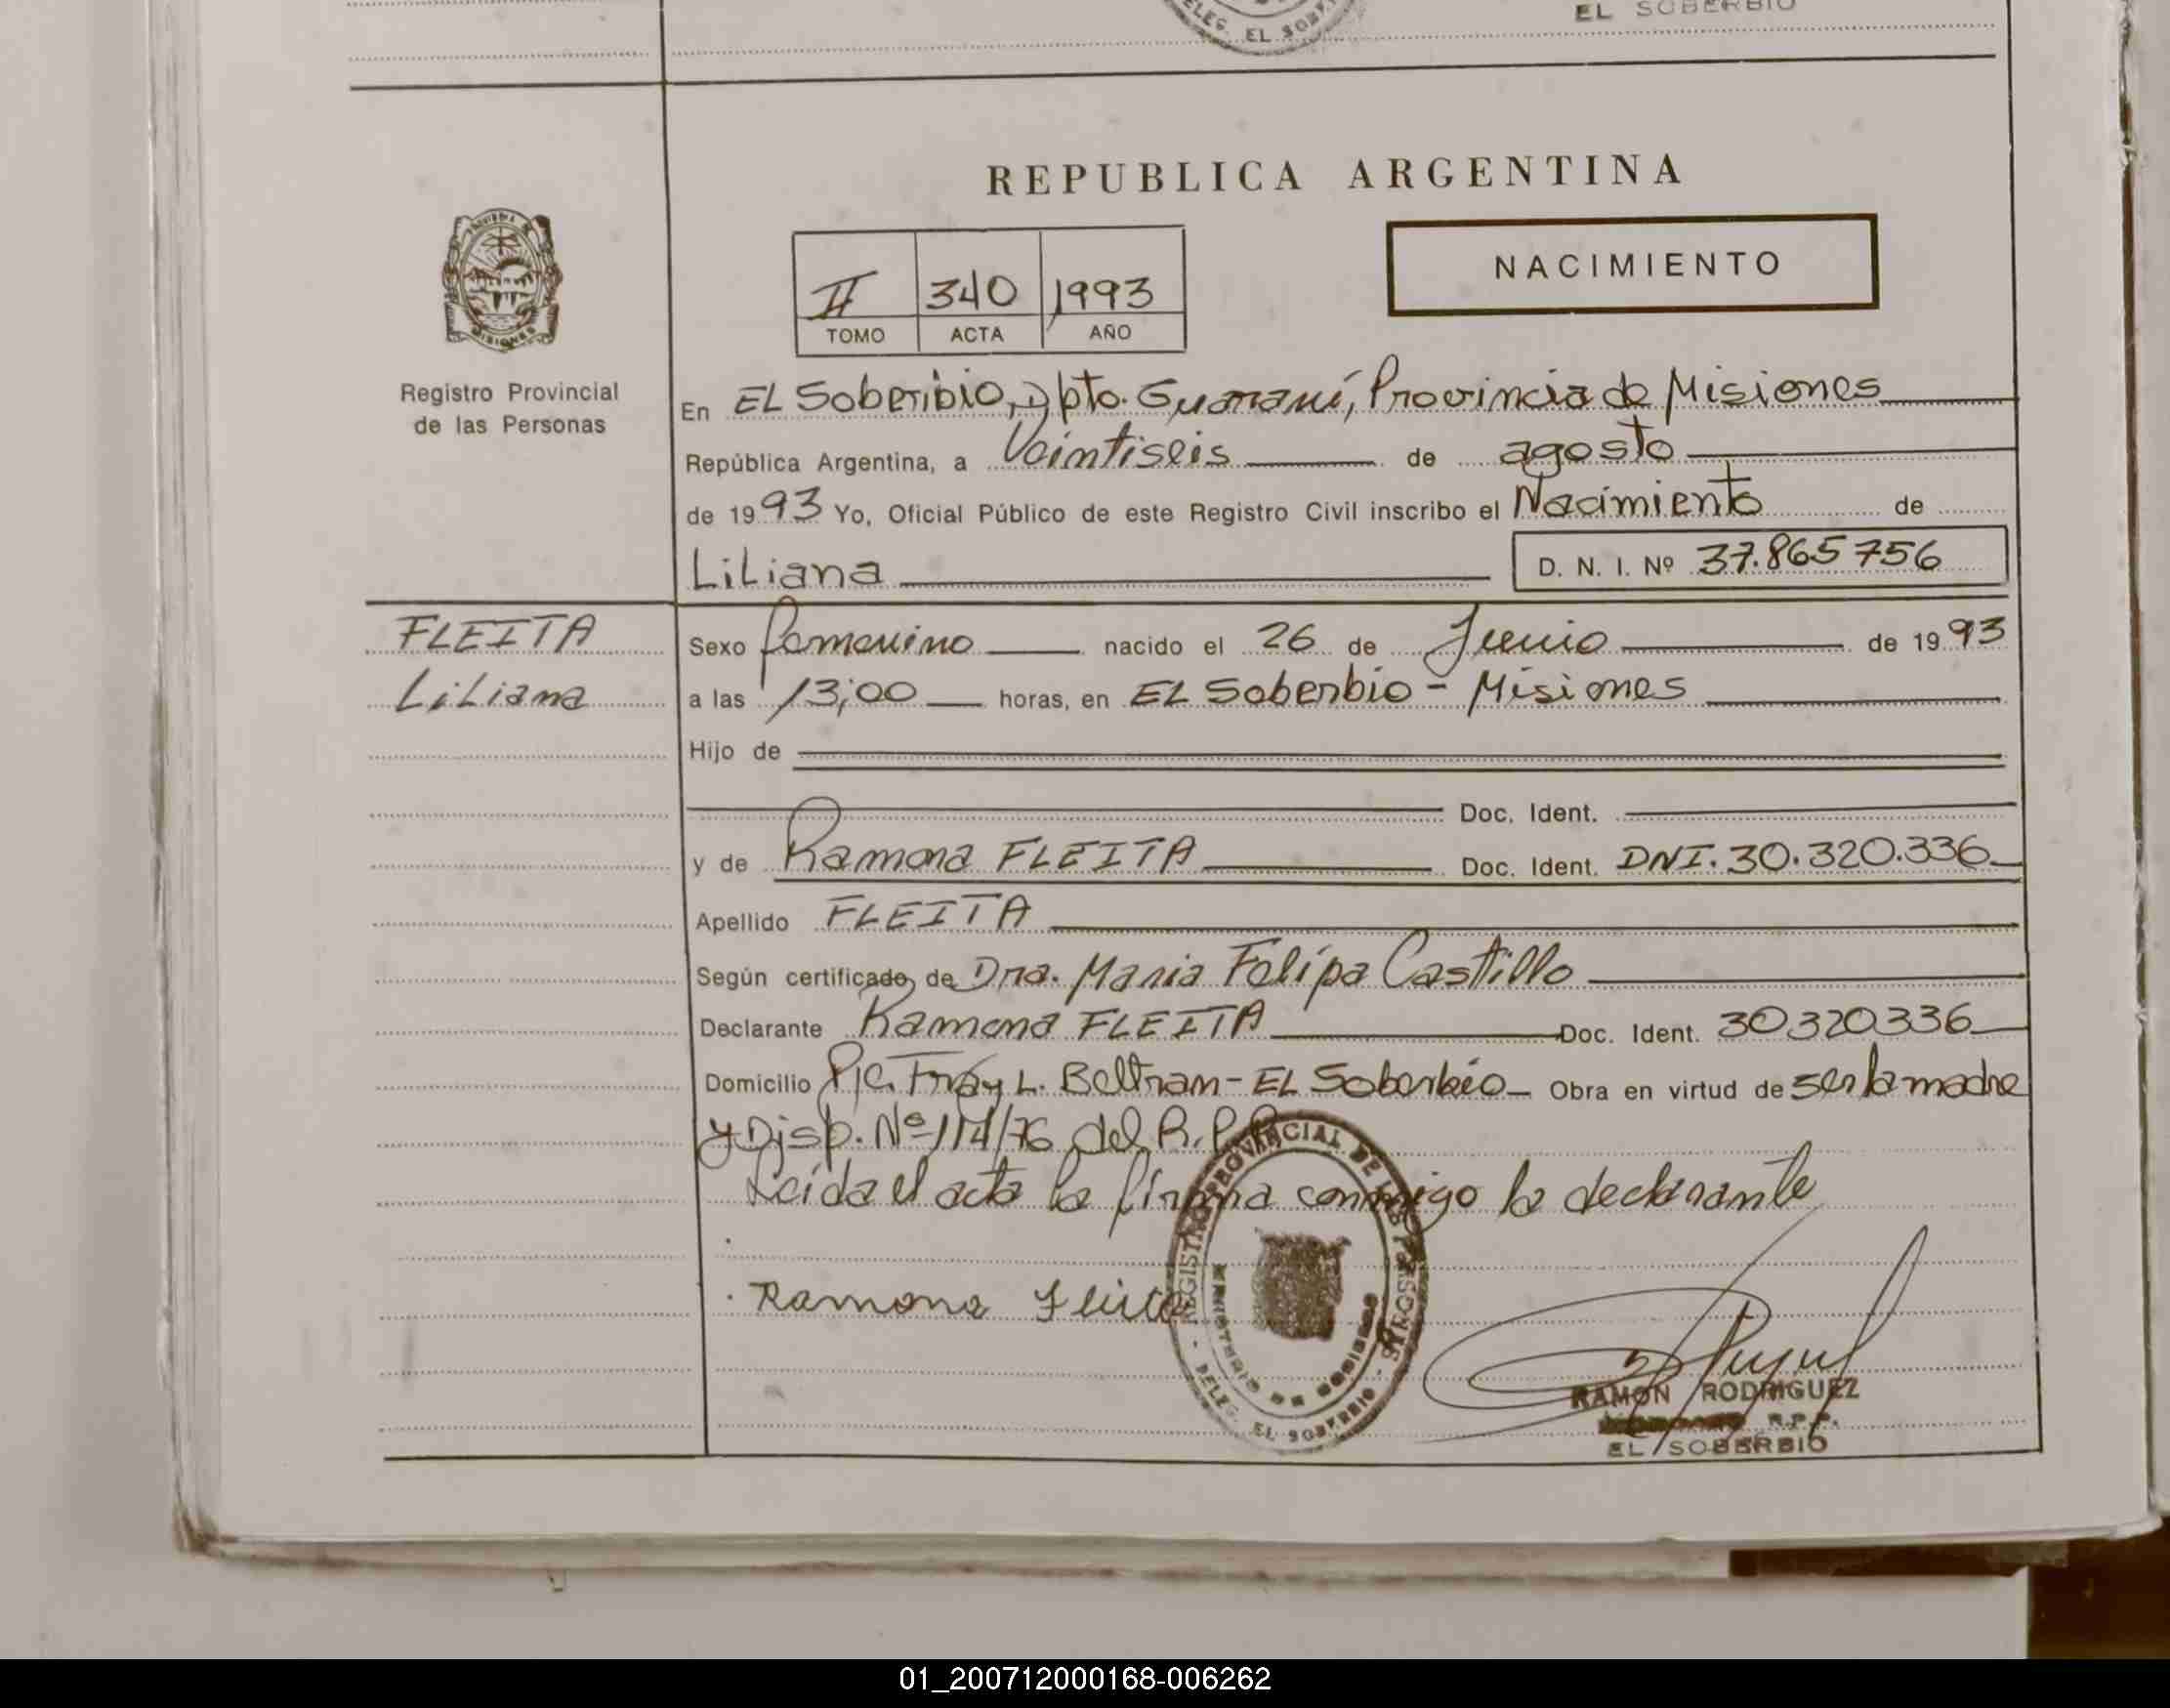 DELEG. EL SOBERBIO
EL SOBERBIO
REPUBLICA ARGENTINA
MISIONES
Registro Provincial
de las Personas
II 340 1993
TOMO ACTA AÑO
NACIMIENTO
En EL Soberbio, Dpto. Guaraní, Provincia de Misiones
República Argentina, a Veintiseis de agosto
de 1993 Yo, Oficial Público de este Registro Civil inscribo el Nacimiento de
Liliana D. N. I. Nº 37.865756
FLEITA
Liliana
Sexo femenino nacido el 26 de Junio de 1993
a las 13;00 horas, en EL Soberbio - Misiones
Hijo de
Doc. Ident.
y de Ramona FLEITA Doc. Ident. DNI. 30.320.336
Apellido FLEITA
Según certificado de Dra. Maria Felipa Castillo
Declarante Ramona FLEITA Doc. Ident. 30320336
Domicilio Pje. Fray L. Beltram - EL Soberbio - Obra en virtud de ser la madre
y Disp. Nº 114/76 del R.P.P.
Leída el acta la firma conmigo la declarante
Ramona Fleita
REGISTRO PROVINCIAL DE LAS PERSONAS
MINISTERIO DE GOBIERNO
- DELEG. EL SOBERBIO -
RAMON RODRIGUEZ
R.P.P.
EL SOBERBIO
01_200712000168-006262